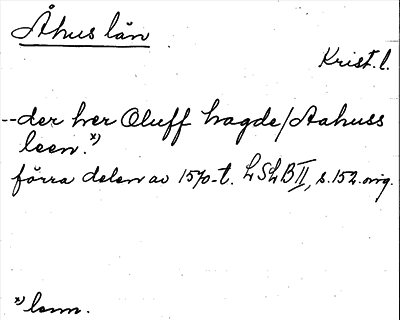 Åhus län
Krist. l.
--der her Oluff hagde/Aahuss
leen.x)
förra delen av 1570-t. LSLB II, s. 152. orig.
x) lenn.